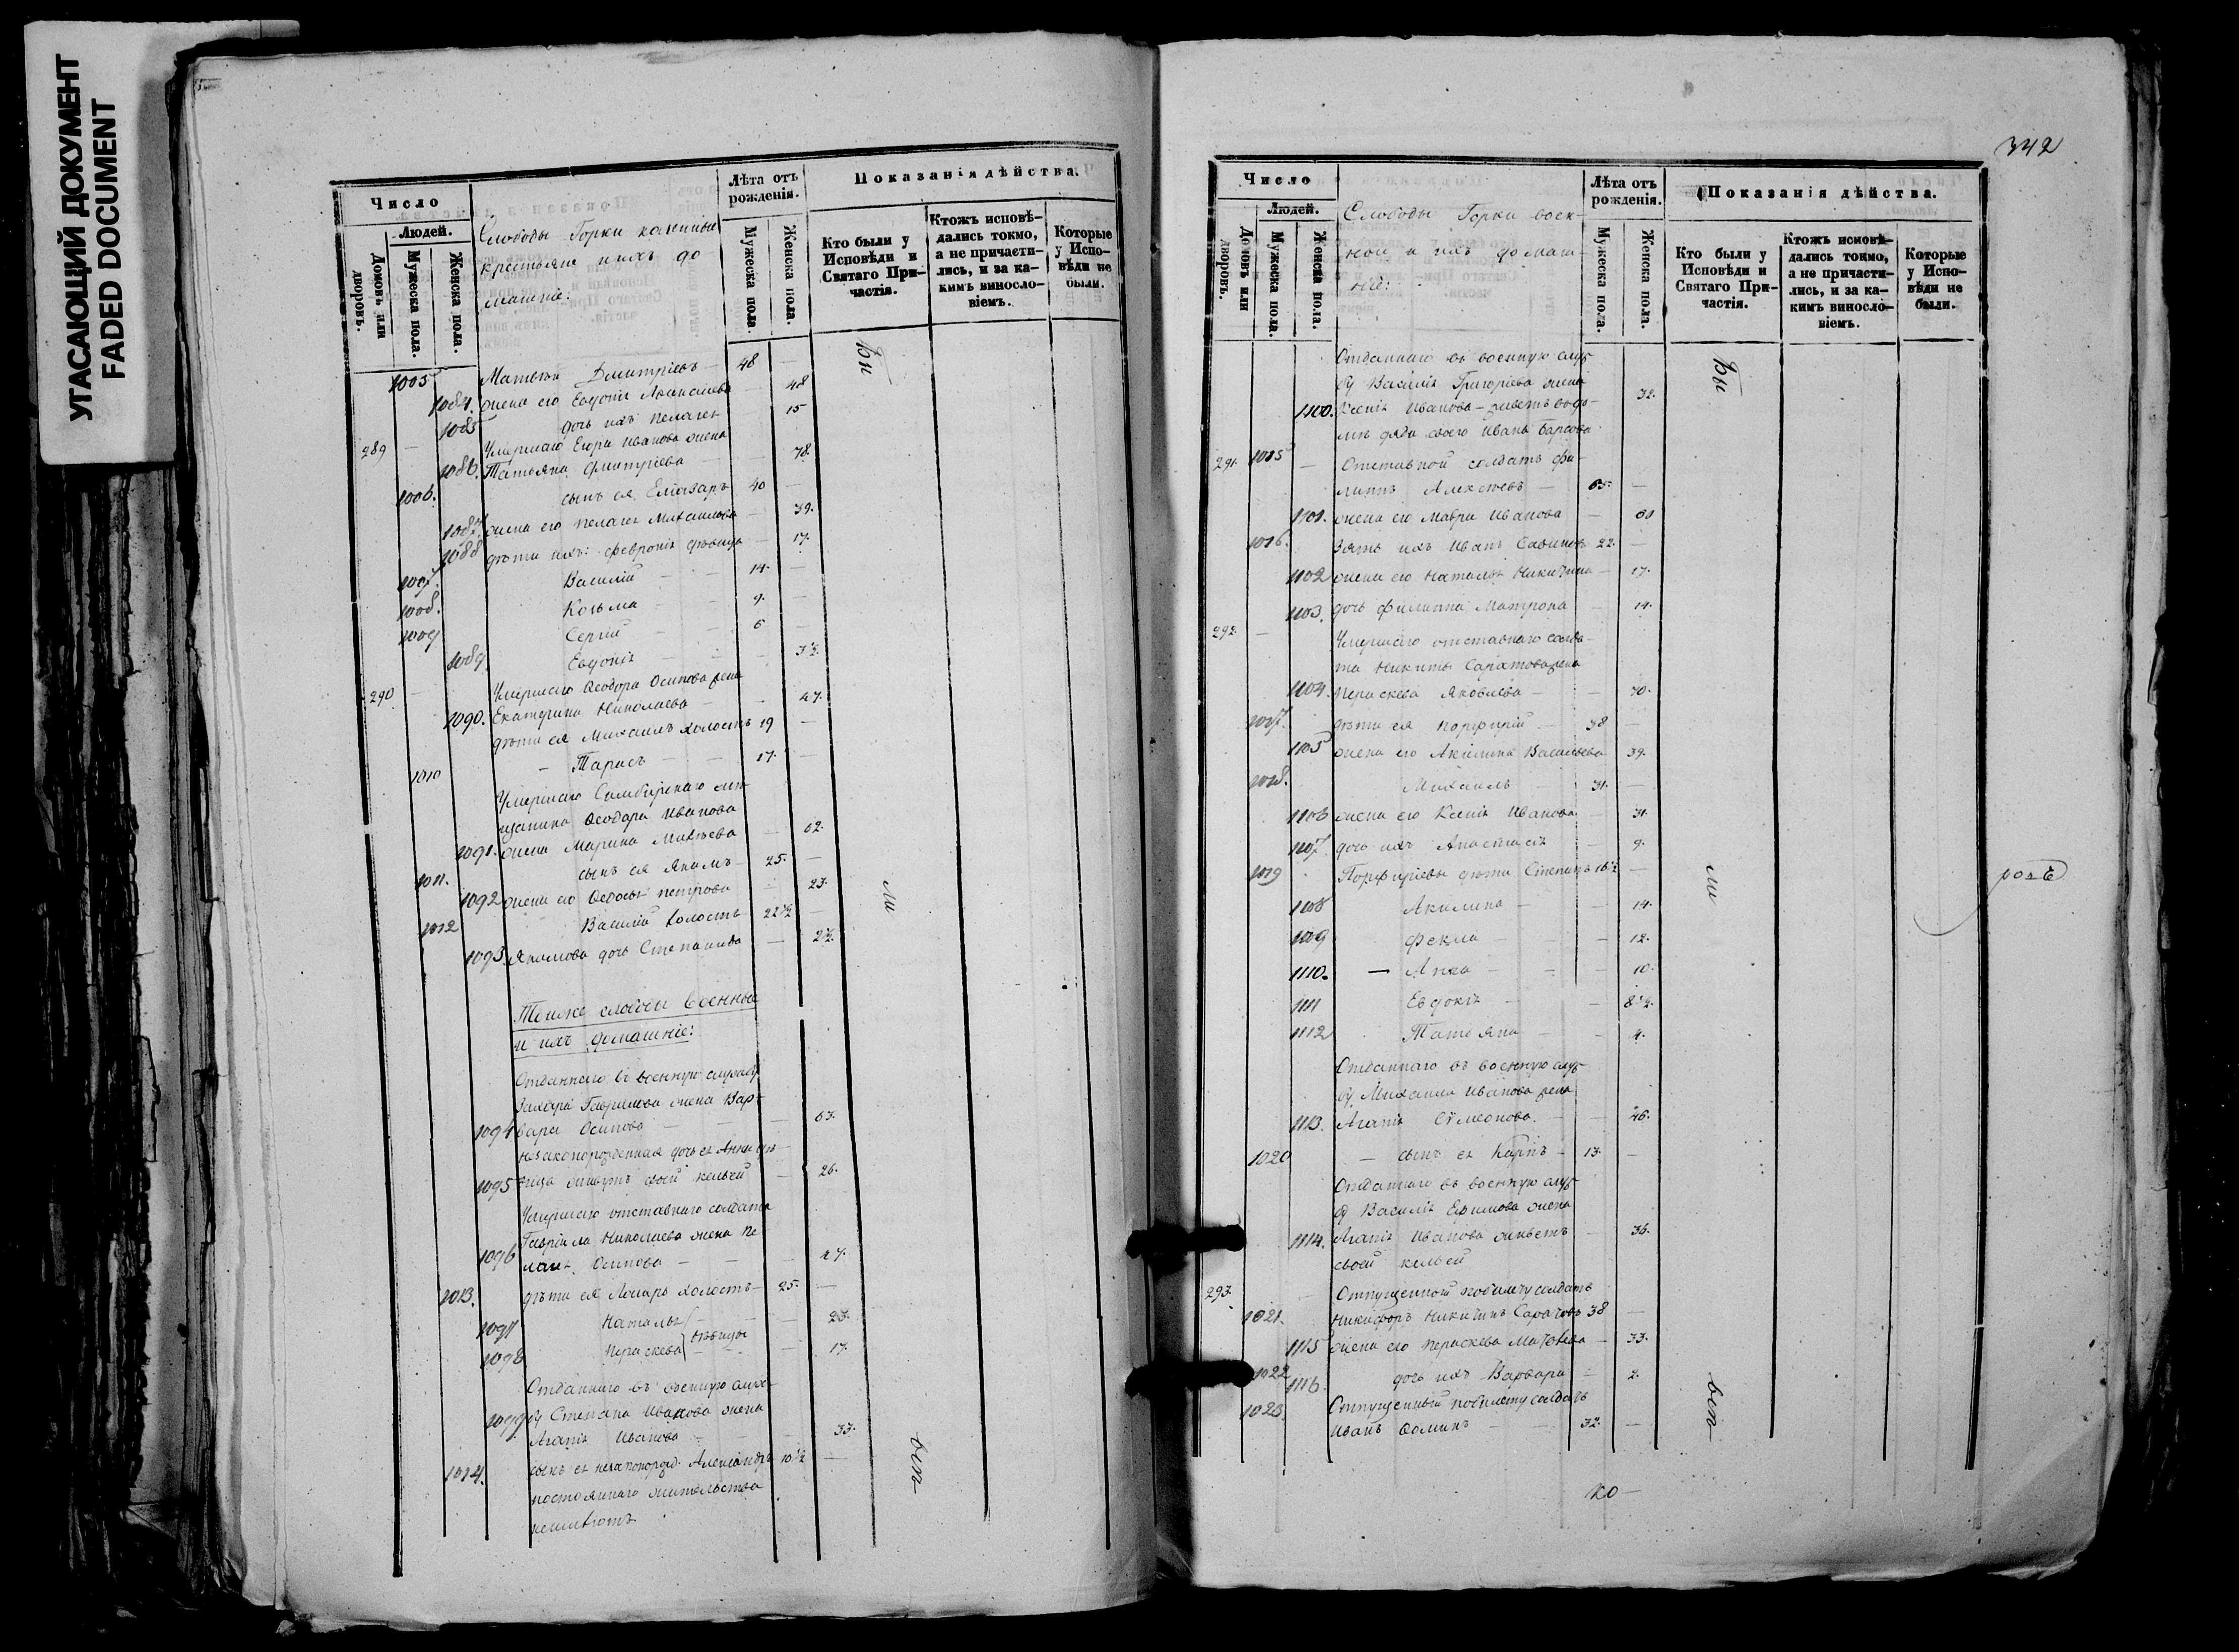 УГАСАЮЩИЙ ДОКУМЕНТ
FADED DOCUMENT
Число
Людей.
Домовъ или дворовъ.
Мужеска пола.
Женска пола.
Слободы Горки казенные
крестьяне и ихъ до
машніе:
Лѣта отъ рожденія.
Мужеска пола.
Женска пола.
Показанія дѣйства.
Кто были у Исповѣди и Святаго Причастія.
Ктожъ исповѣдались токмо, а не причастились, и за какимъ винословіемъ.
Которые у Исповѣди не были.
1005 Матвѣй Дмитріевъ — 48 — Бы
1084. жена его Евдокія — 48
1085 дочь ихъ Пелагея 15
289 — Умершаго Егора Иванова жена
1086. Татьяна Дмитріева — 78.
1006. сынъ ея Еліазаръ 40 —
1087 жена его Пелагея Михайлова — 39.
1088 дѣти ихъ: Февронія дѣвица — 17.
1007. Василій — 14. —
1008. Козьма — 9. —
1009 Сергій — 6 —
1089 Евдокія — 3½.
290. — Умершаго Ѳеодора Осипова жена
1090. Екатерина Николаева — 47.
дѣти ея Михаилъ холостъ 19 —
1010 — Тарасъ — 17. —
Умершаго Симбирскаго мѣ-
щанина Ѳеодора Иванова
1091. жена Марина Михѣева — 62.
1011. сынъ ея Якимъ — 25. —
1092 жена его Ѳедосья Петрова — 23. ли
1012 Василій холостъ 22½ —
1093. Якимова дочь Степанида — 2½.
Тойже слободы военные
и ихъ домашніе:
Отданнаго въ военную службу
Захара Гаврилова жена Вар-
1094 вара Осипова — 63.
незаконорожденная дочь ея Анна дѣ-
1095 вица живутъ своей кельей — 26.
Умершаго отставнаго солдата
Гавріила Николаева жена Пе
1096 лагея Осипова — 47.
1013. дѣти ея Лазарь холостъ — 25. —
1097 Наталья — 23.
1098 Параскева дѣвицы — 17.
Отданнаго въ военную служ-
1099 бу Степана Иванова жена
Агапія Иванова — 33. вып
1014. сынъ ея незаконорожд. Александръ 10½ —
постояннаго жительства
неимѣютъ.
342
Число
Людей.
Домовъ или дворовъ.
Мужеска пола.
Женска пола.
Слободы Горки воен-
ной и ихъ домаш-
ніе:
Лѣта отъ рожденія.
Мужеска пола.
Женска пола.
Показанія дѣйства.
Кто были у Исповѣди и Святаго Причастія.
Ктожъ исповѣдались токмо, а не причастились, и за какимъ винословіемъ.
Которые у Исповѣди не были.
Отданнаго въ военную служ- Бы
бу Василія Григоріева жена
1100. Ксенія Иванова — живетъ въ до- 32.
мѣ дяди своего Ивана Барсова
291. 1015 — Отставной солдатъ Фи-
липпъ Алексѣевъ — 65. —
1101. жена его Мавра Иванова — 60
1016. Зять ихъ Иванъ Савиновъ 22. —
1102 жена его Наталья Никитина — 17.
1103. дочь Филиппа Матрона 14.
292. — Умершаго отставнаго солда-
та Никиты Саратова жена
1104. Параскева Яковлева — 70.
1017. дѣти ея Порфирій — 38 —
1105 жена его Акилина Васильева 39.
1018. Михаилъ — 31. —
1106 жена его Ксенія Иванова — 31.
1107. дочь ихъ Анастасія — 9.
1019 Порфиріевы дѣти Степанъ 16½ — ли
1108 Акилина — 14.
1109 Фекла — 12.
1110. — Анна — 10.
1111 Евдокія — 8½.
1112 Татьяна — 4.
Отданнаго въ военную служ-
бу Михаила Иванова жена
1113. Агапія Сѵмеонова. — 46.
1020 — сынъ ея Карпъ — 13. —
Отданнаго въ военную служ-
бу Василія Ефимова жена
1114. Агапія Иванова живетъ — 36.
своей кельей
293. — Отпущенной побилету солдатъ
1021. Никифоръ Никитинъ Саратовъ 38 —
1115 жена его Параскева Матвѣева — 33.
1022 1116. дочь ихъ Варвара — 2.
1023. Отпущенный побилету солдатъ
Иванъ Ѳоминъ — 32. — вып
ко —